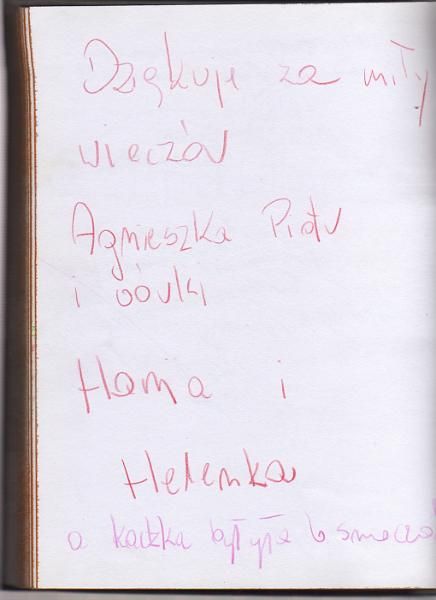 Dziękuje za miły
wieczór
Agnieszka Piotr
i córki
Hania i
Helenka
a kaczka była b